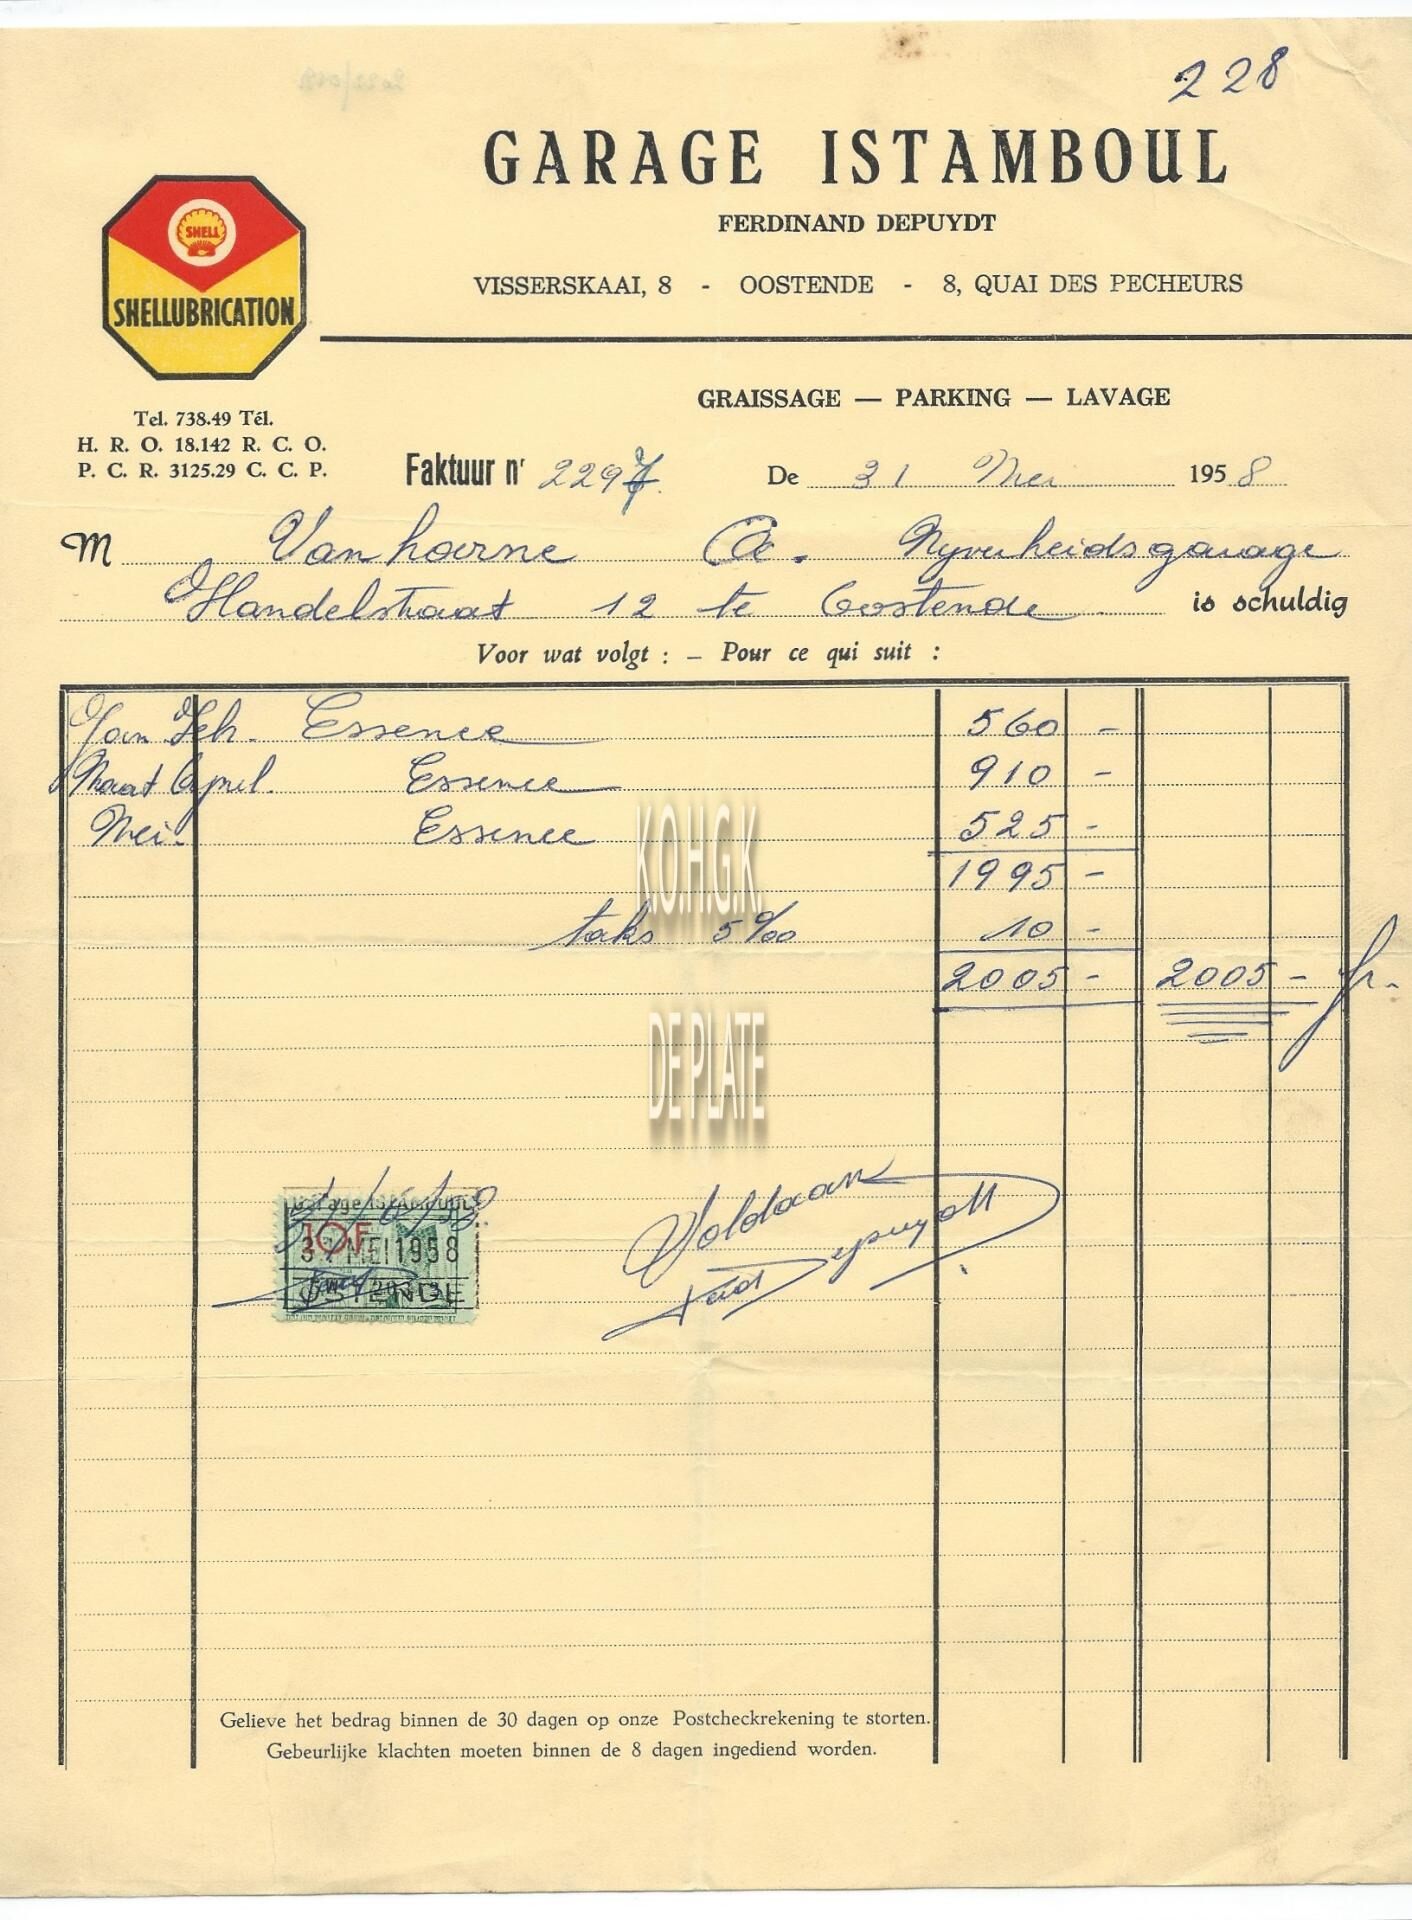 228
GARAGE ISTAMBOUL
FERDINAND DEPUYDT
VISSERSKAAI, 8 - OOSTENDE - 8, QUAI DES PECHEURS
SHELL
SHELLUBRICATION
GRAISSAGE — PARKING — LAVAGE
Tel. 738.49 Tél.
H. R. O. 18.142 R. C. O.
P. C. R. 3125.29 C. C. P.
Faktuur nr 2297. De 31 Mei 1958
M Vanhoorne Nyverheidsgarage
Handelstraat 12 te Oostende is schuldig
Voor wat volgt : – Pour ce qui suit :
Jan Feb. Essence 560 -
Maart April. Essence 910 -
Mei. Essence 525 -
1995 -
taks 5‰ 10 -
2005 - 2005 - fr.
K.O.H.G.K.
DE PLATE
Voldaan
Depuydt
Garage ISTAMBOUL
10F
31 MEI 1958
OSTENDE
Gelieve het bedrag binnen de 30 dagen op onze Postcheckrekening te storten.
Gebeurlijke klachten moeten binnen de 8 dagen ingediend worden.